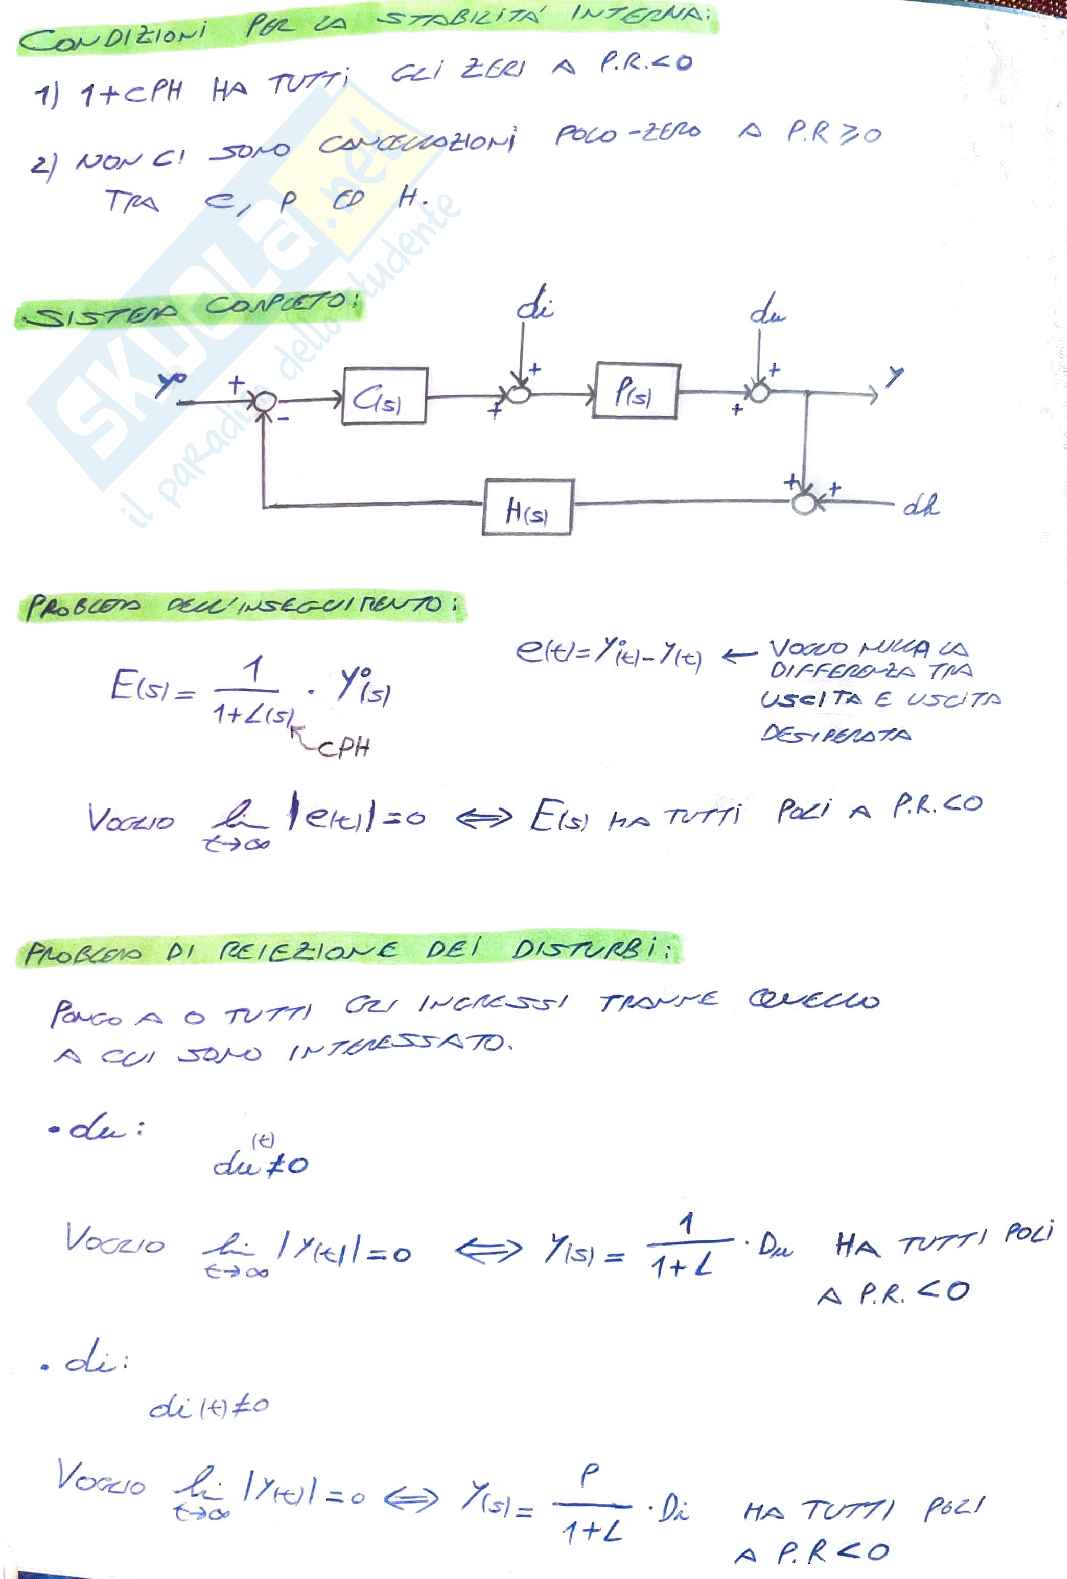 CONDIZIONI PER LA STABILITÀ INTERNA:
1) 1+CPH HA TUTTI GLI ZERI A P.R.<0
2) NON CI SONO CANCELLAZIONI POLO-ZERO A P.R ≥0
TRA C, P ED H.
SKUOLA.net
il paradiso dello studente
SISTEMA COMPLETO:
di du
y° + - C(s) + + P(s) + + y
H(s) + + dh
PROBLEMA DELL'INSEGUIMENTO:
e(t)=y°(t)-y(t) ← VOGLIO NULLA LA
DIFFERENZA TRA
USCITA E USCITA
DESIDERATA
E(s) = 1/(1+L(s)) · Y°(s)
CPH
VOGLIO lim t→∞ |e(t)|=0 ⟺ E(s) HA TUTTI POLI A P.R.<0
PROBLEMA DI REIEZIONE DEI DISTURBI:
PONGO A 0 TUTTI GLI INGRESSI TRANNE QUELLO
A CUI SONO INTERESSATO.
• du:
du(t)≠0
VOGLIO lim t→∞ |y(t)|=0 ⟺ Y(s) = 1/(1+L) · Du HA TUTTI POLI
A P.R. <0
• di:
di(t)≠0
VOGLIO lim t→∞ |y(t)|=0 ⟺ Y(s) = P/(1+L) · Di HA TUTTI POLI
A P.R<0